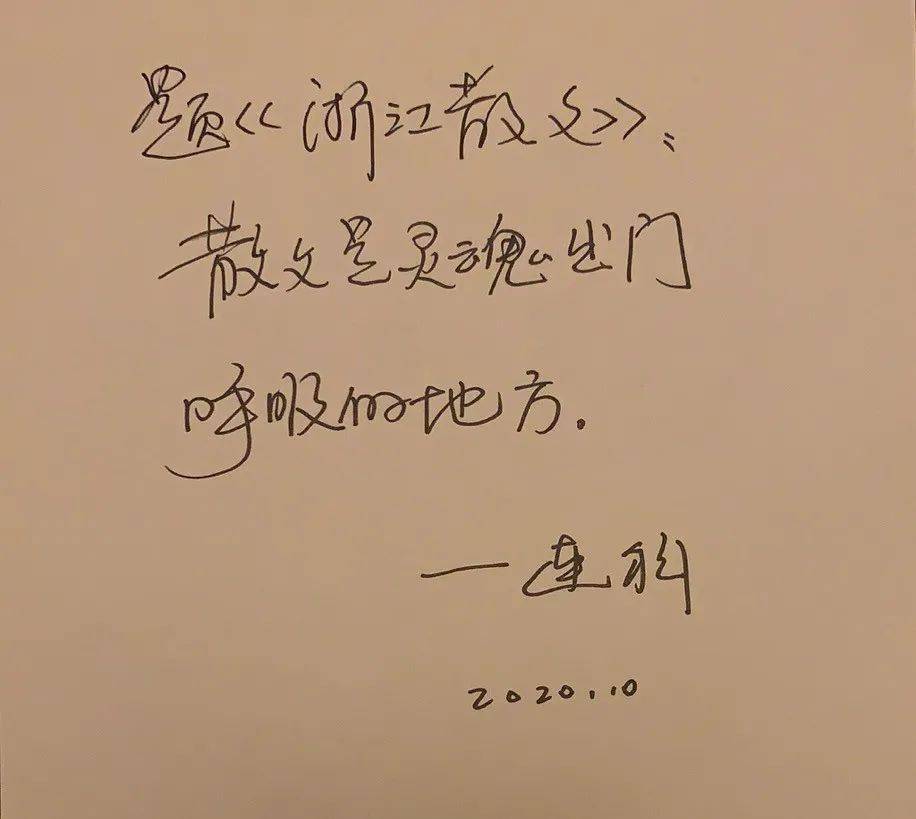 题《浙江散文》：
散文是灵魂出门
呼吸的地方.
—连科
2020.10